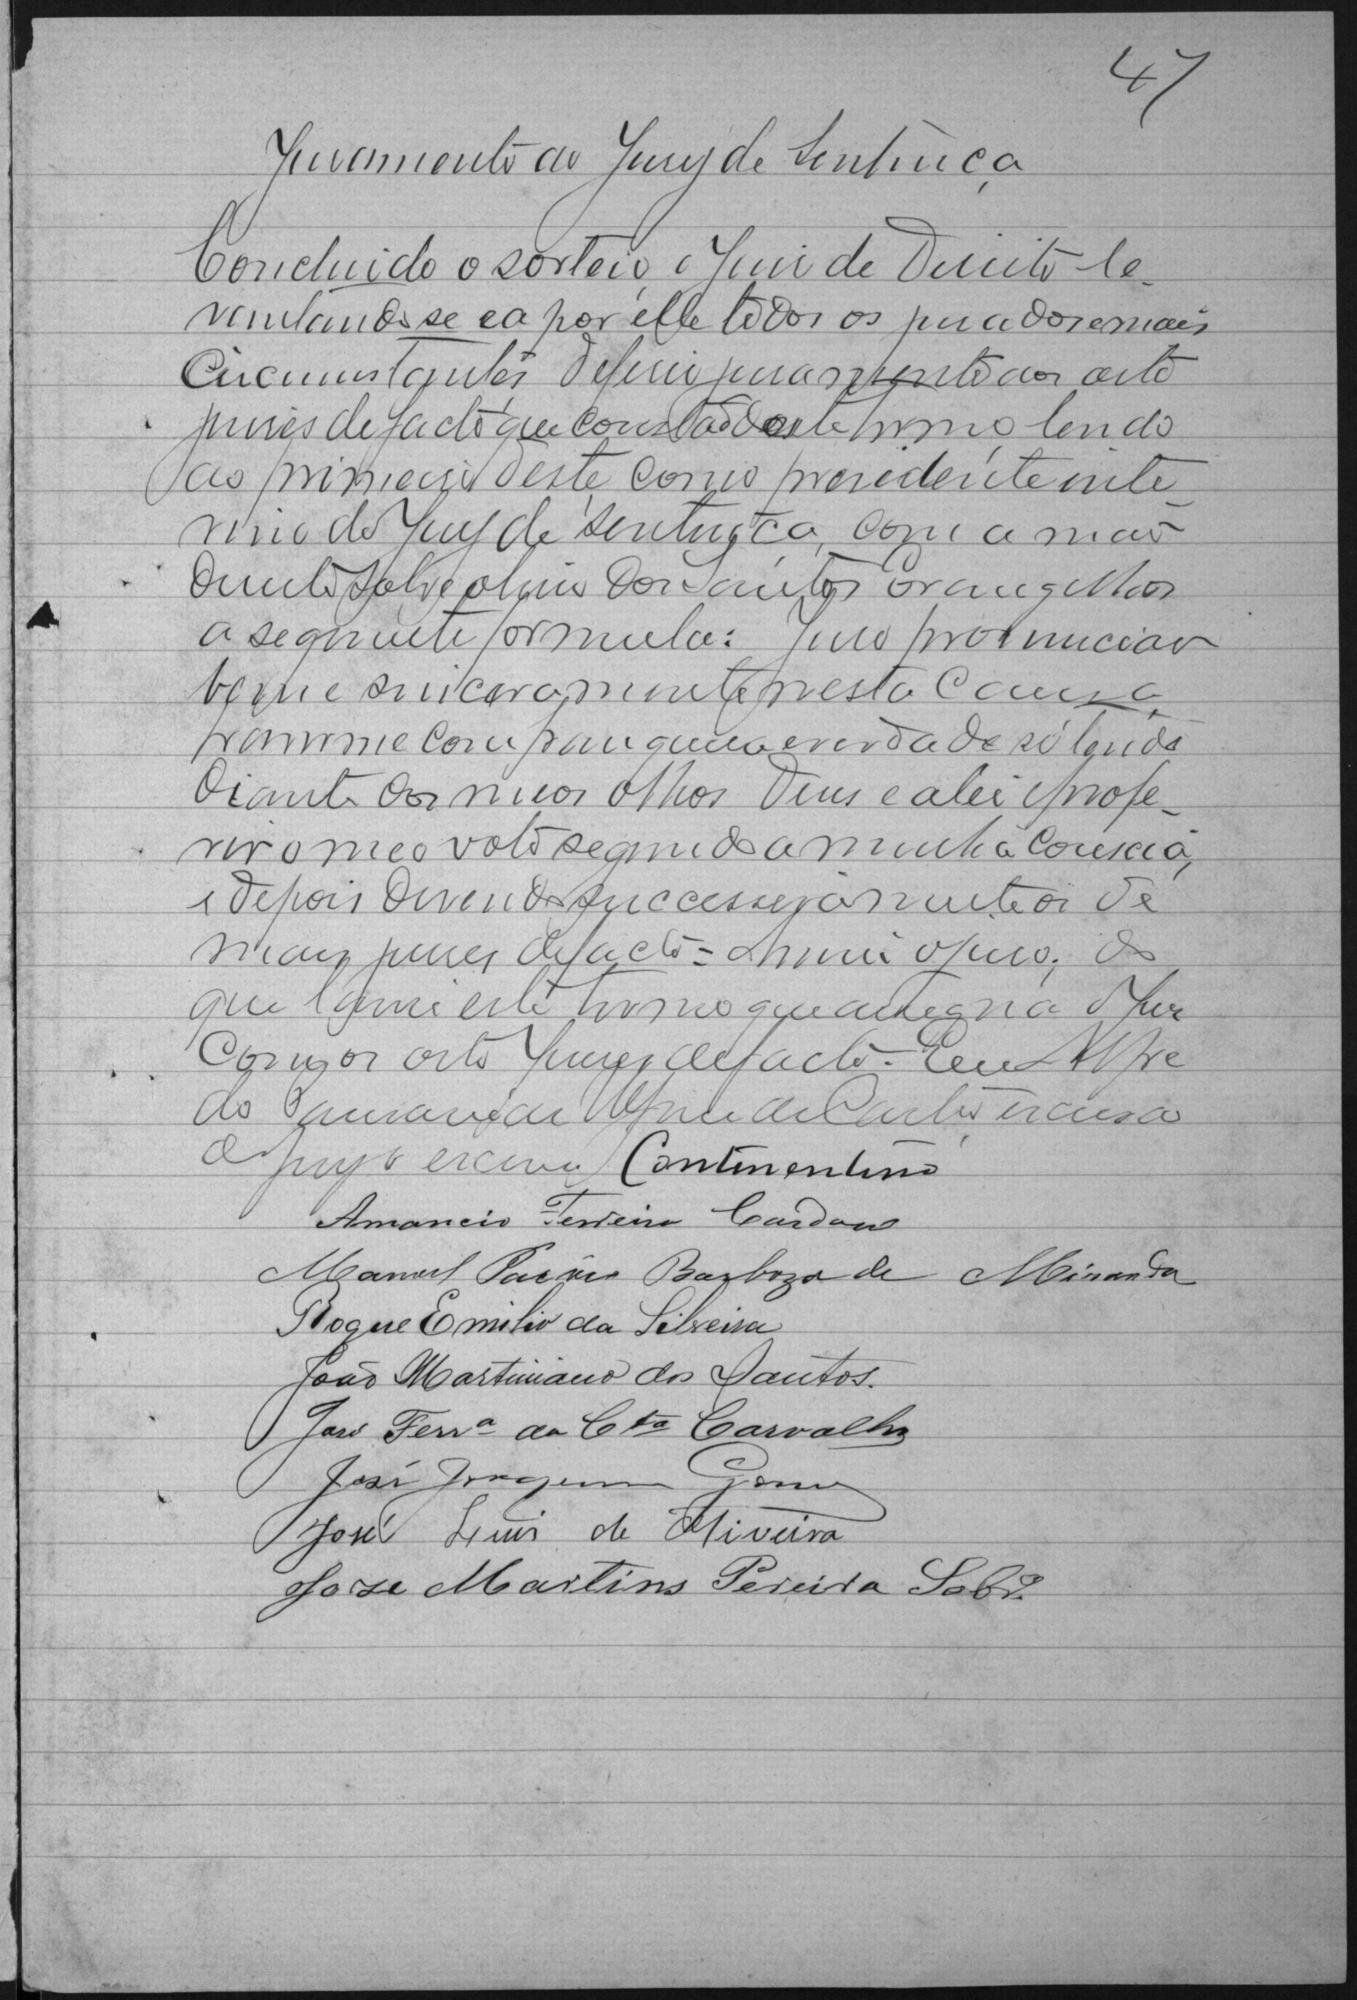 47
Juramento ao Jury de Sentença
Concluido o sorteio, o Juiz de Direito le-
vantando-se e a por elle todos os jurados e mais
Circumstantes deferio juramento aos oito
juizes de facto que constão deste termo, lendo
ao primeiro deste como presidente inte-
rino do Jury de Sentença, com a mão
direita sobre o livro dos Santos Evangelhos
a seguinte formula: Juro pronunciar
bem e sinceramente nesta Causa,
haver-me com franqueza e verdade só tendo
diante dos meos olhos Deus e a lei e profe-
rir o meo voto segundo a minha conscia,
e depois disendo successivamente os de
mais juizes de facto = Assim o juro; do
que lavrei este termo que assegna o Juiz
Com os oito Juizes de facto. Eu Alfre
do de Castro escrivão
do jury o escrevi Continentino
Amancio Ferreira Cardoso
Manoel Barboza de Miranda
Roque Emilio da Silveira
João Martiniano dos Santos.
José Ferra da Cta Carvalho
José Joaquim Gomes
José Luis de Oliveira
Joze Martins Pereira Sobro.